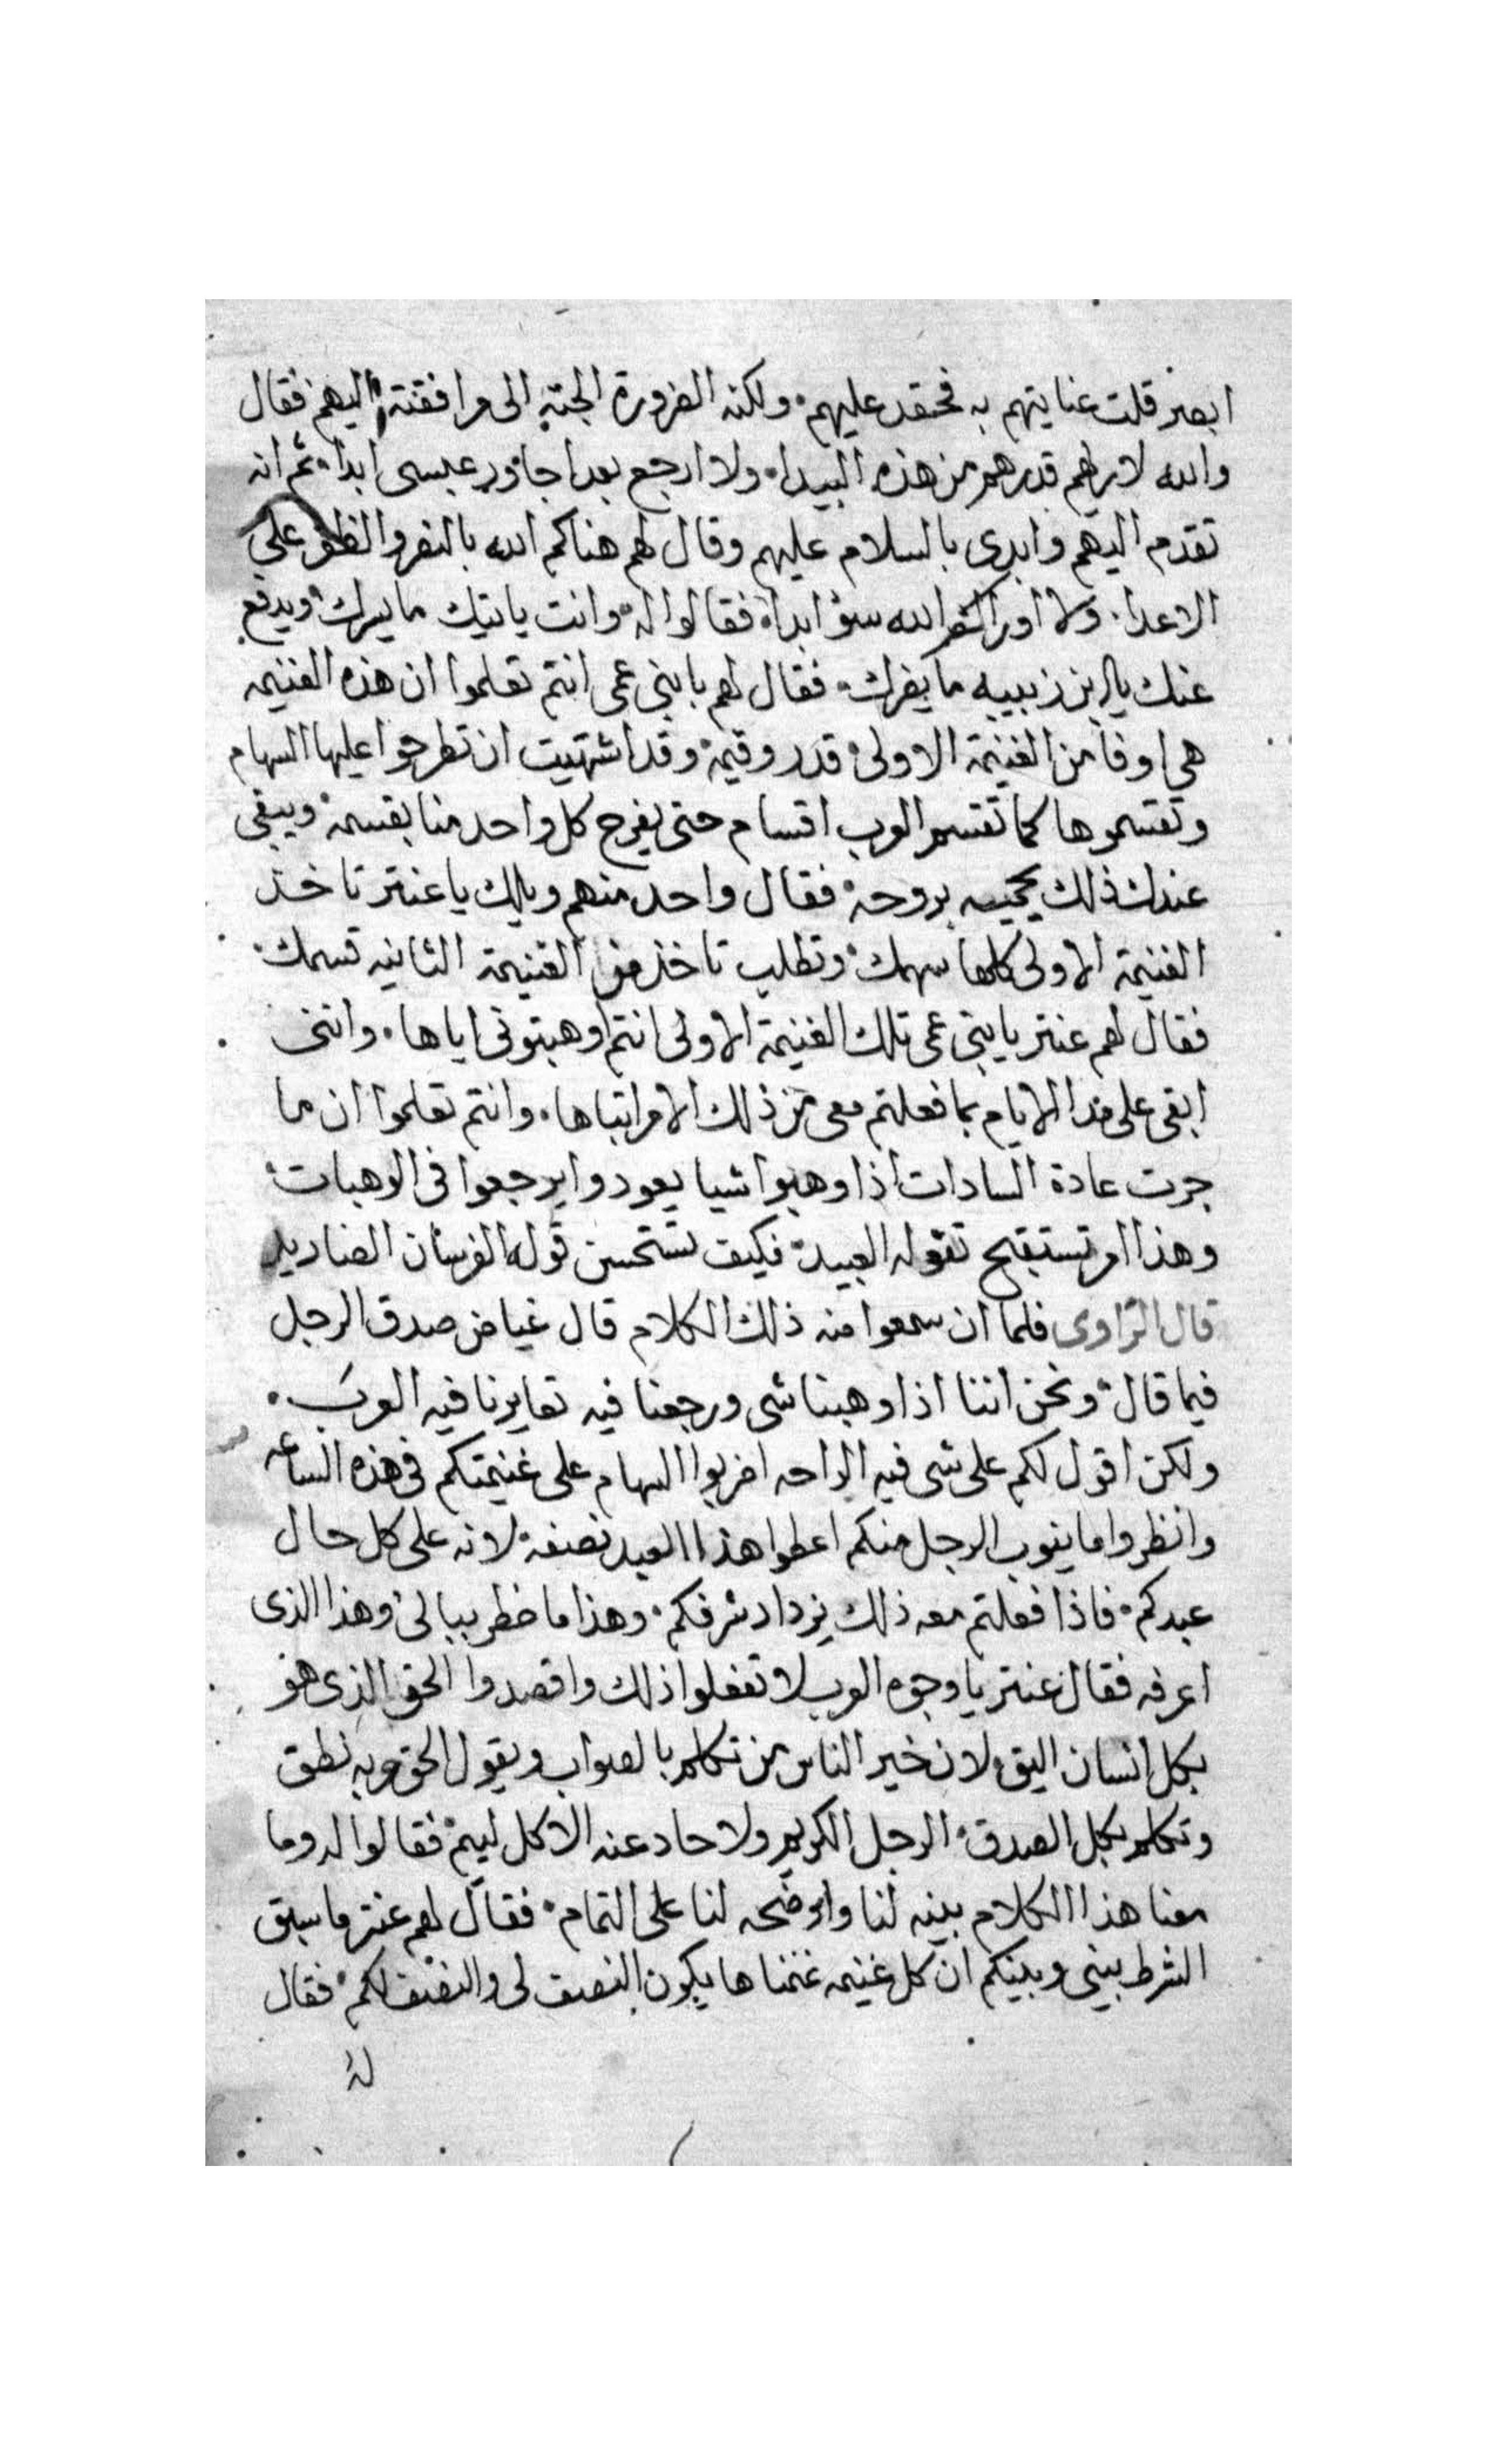 ابصر قلت عنايتهم به فحقد عليهم ولكنه الضرورة الجته الى مرافقته اليهم فقال
والله لاريهم قدرهم من هذه البيدا ولا ارجع بعدا جاور عبسى ابدا ثم انه
تقدم اليهم وابدى بالسلام عليهم وقال لهم هناكم الله بالنصر والظفر على
الاعدا ولا اوراكم الله سوء ابدا فقالوا له وانت ياتيك ما يسرك ويدفع
عنك يابن زبيبه ما يضرك فقال لهم يا بنى عمى انتم تعلموا ان هذه الغنيمه
هى اوفا من الغنيمة الاولى قدر وقيمة وقد اشتهيت ان تطرحوا عليها السهام
وتقسموها كما تقسم العرب اقسام حتى يفرح كل واحد منا بقسمه ويبقى
عندك ذلك بروحه فقال واحد منهم ويلك يا عنتر تاخذ
الغنيمة الاولى كلها سهمك وتطلب تاخذ من الغنيمة الثانيه قسمك
فقال لهم عنتر يا بنى عمى تلك الغنيمة الاولى انتم اوهبتونى اياها واننى
ابقى على مدا الايام بما فعلتم معى من ذلك الامر اتباها وانتم تعلموا ان ما
جرت عادة السادات اذا وهبوا شيا يعودوا يرجعوا فى الوهبات
وهذا امر تستقبح تقوله العبيد فكيف تستحسن قوله الفرسان الصناديد
قال الراوى فلما ان سمعوا منه ذلك الكلام قال غياض صدق الرجل
فيما قال ونحن اننا اذا وهبنا شى ورجعنا فيه تعايرنا فيه العرب
ولكن اقول لكم على شى فيه الراحه اضربوا السهام على غنيمتكم فى هذه الساعه
وانظروا ما ينوب الرجل منكم اعطوا هذا العبد نصفه لانه على كل حال
عبدكم فاذا فعلتم معه ذلك يزداد شرفكم وهذا ما خطر ببالى وهذا الذى
اعرفه فقال عنتر يا وجوه العرب لا تفعلوا ذلك واقصدوا الحق الذى هو
بكل انسان اليق لان خير الناس من تكلم بالصواب ويقول الحق وبه نطق
وتكلم بكل الصدق الرجل الكريم ولا حاد عنه الا كل ليم فقالوا له وما
معنا هذا الكلام بينه لنا واوضحه لنا على التمام فقال لهم عنتر ما سبق
الشرط بينى وبينكم ان كل غنيمه غنمناها يكون النصف لى والنصف لكم فقال
له